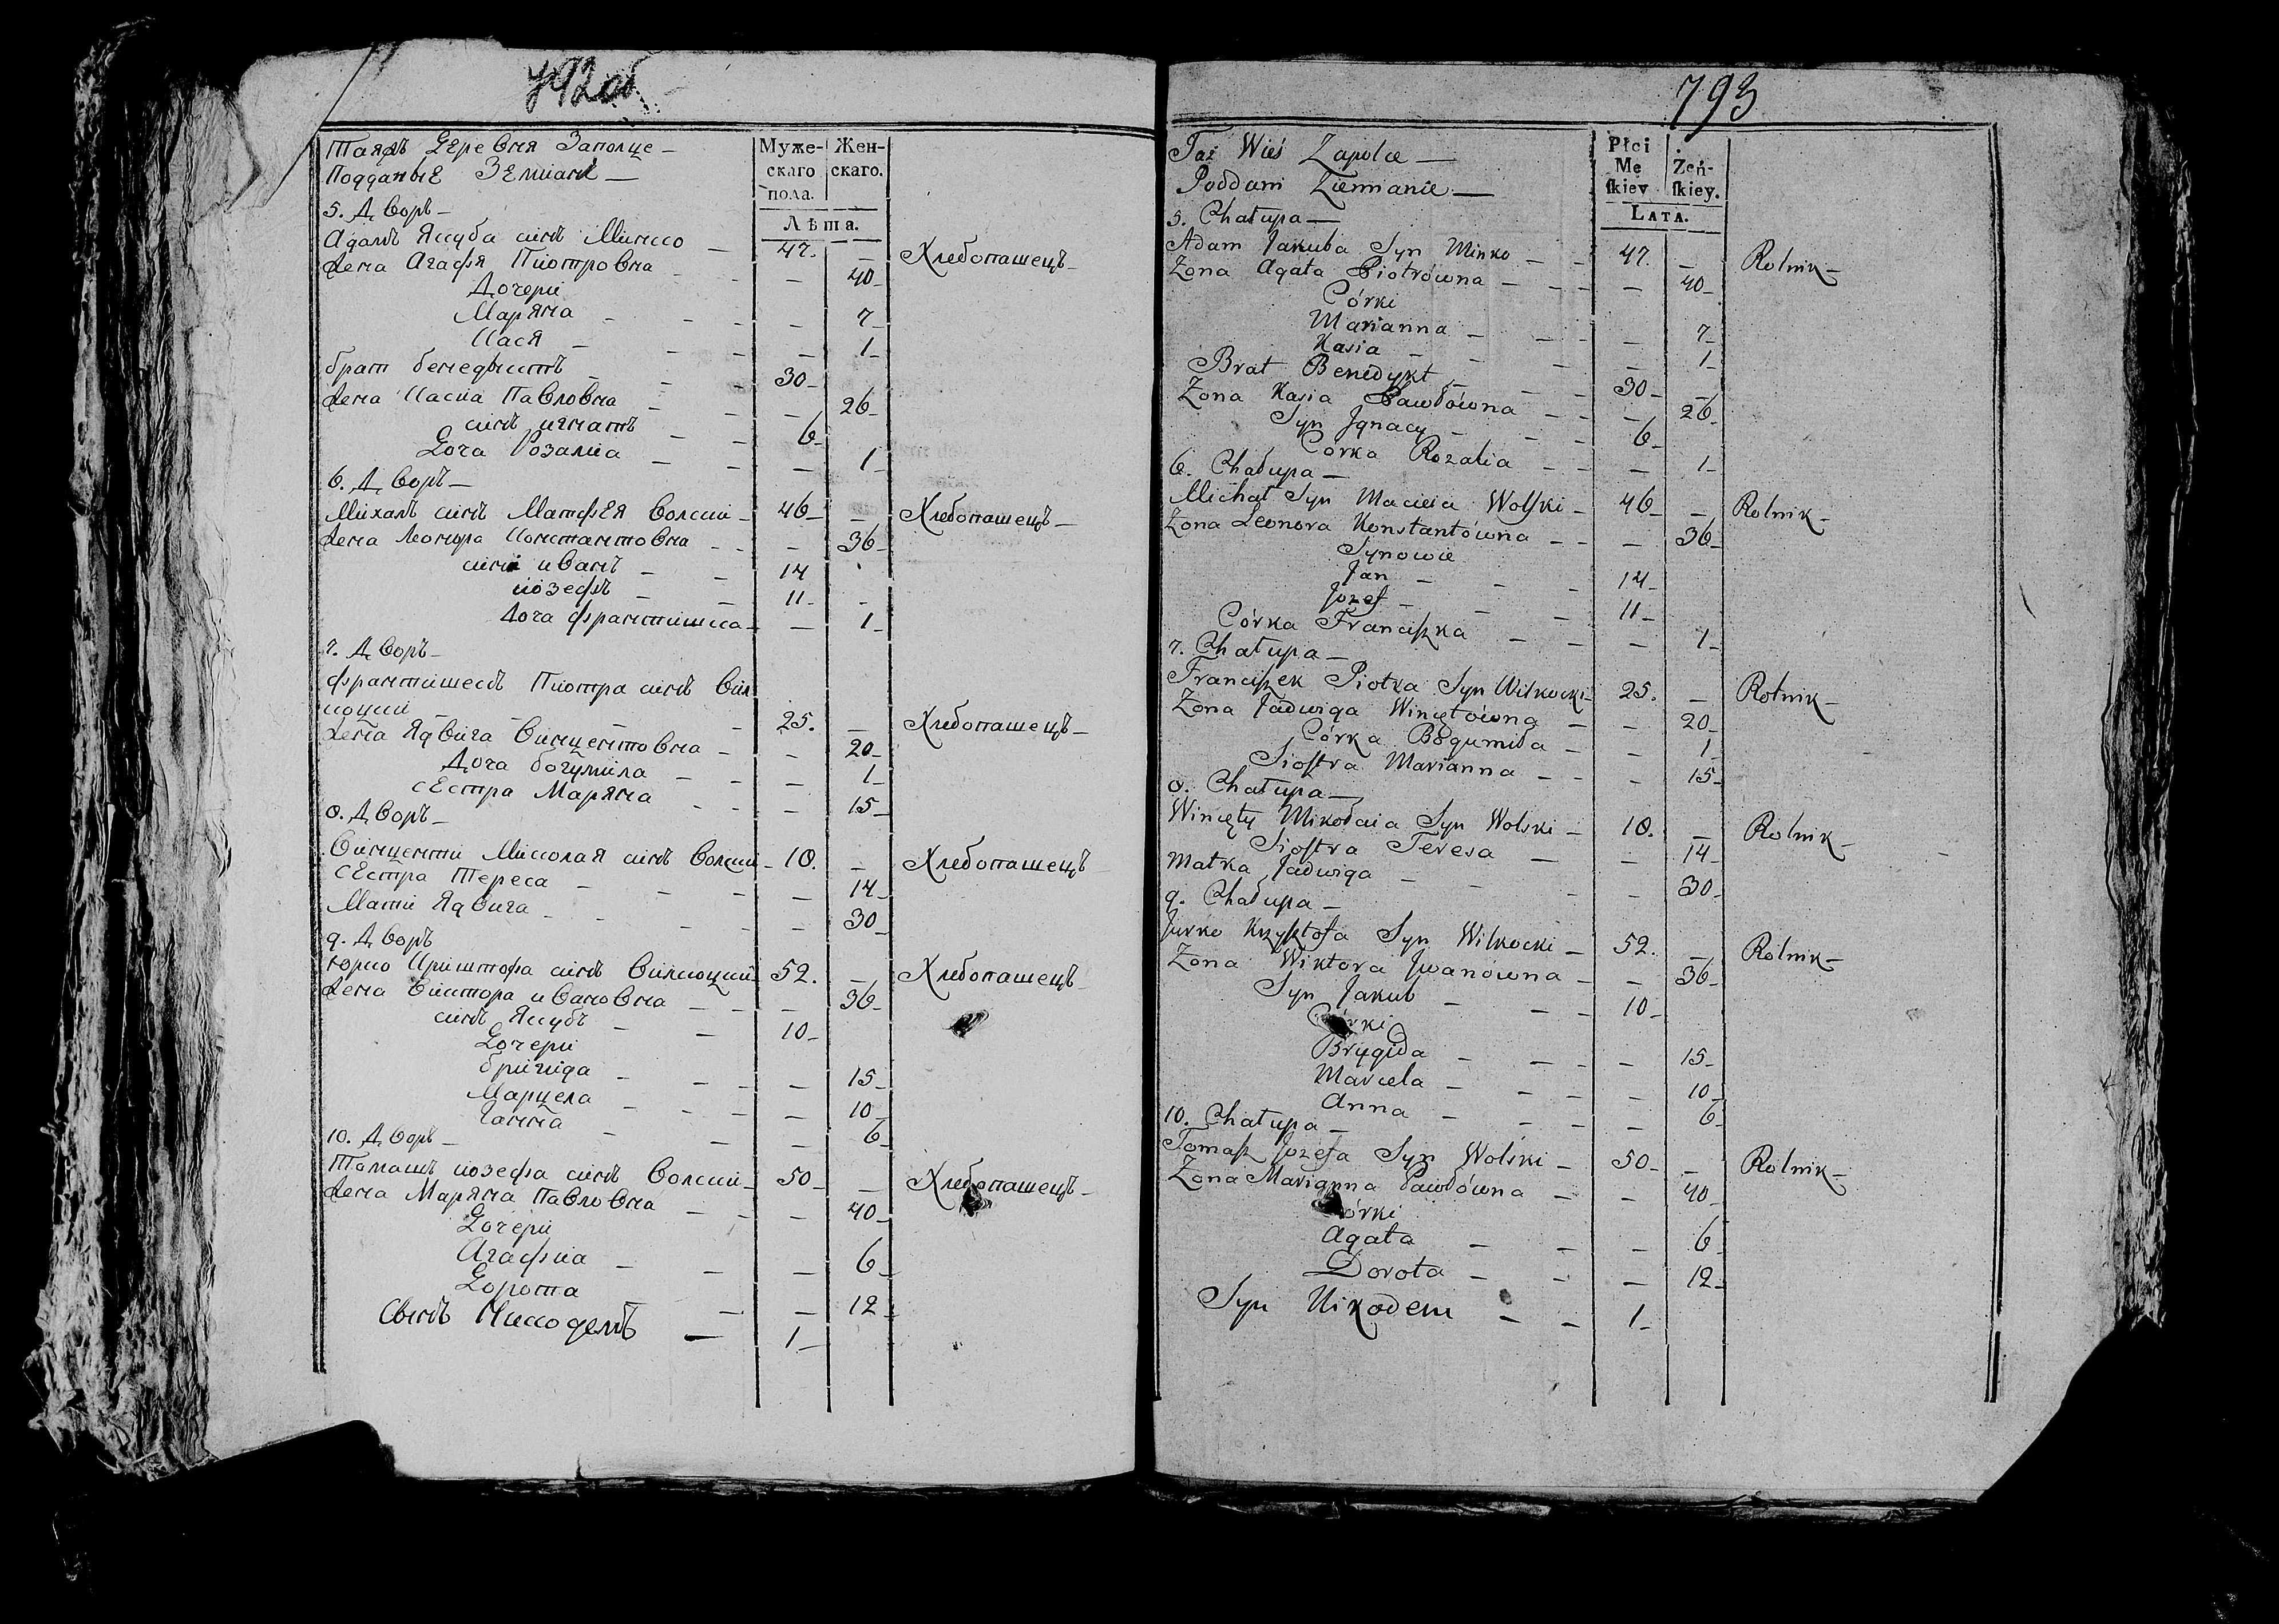 792об
Таяжъ Деревня Заполце —
Подданые Земіане —
Муже-
скаго
пола.
Жен-
скаго.
Лѣта.
5. Дворъ —
Адамъ Якуба синъ Минко — 47. — Хлебопашецъ —
Жена Агафя Піотровна — — 40 —
Дочери
Маряна — — — — 7 —
Кася — — — — 1 —
братъ бенедиктъ — — 30 —
Жена Касиа Павловна — — — 26 —
синъ игнатъ — — 6 —
Доча Розалиа — — — 1 —
6. Дворъ —
Михалъ синъ Матфея Волски — 46 — — Хлебопашецъ —
Жена Леонора Константовна — — — 36 —
сини иванъ — — 14
иозефъ — — 11 —
Доча франтишка — — 1 —
7. Дворъ —
франтишекъ Піотра синъ Вил
коцки — — — — 25. — Хлебопашецъ —
Жена Ядвига Винцентовна — — 20 —
Доча богумила — — — — 1 —
сестра Маряна — — — 15 —
8. Дворъ —
Винценти Миколая синъ Волски — 18. — Хлебопашецъ
сестра Тереса — — — — 14 —
Мати Ядвига — — — — 30
9. Дворъ
Юрко Криштофа синъ Вилкоцки — 52. — Хлебопашецъ —
Жена Виктора ивановна — — — 36 —
синъ Якубъ — — 10 —
Дочери
бригида — — — — 15 —
Марцела — — — — 10 —
Ганна — — — 6 —
10. Дворъ —
Томашъ иозефа синъ Волски — 50 — — Хлебопашецъ —
Жена Маряна Павловна — — — 40 —
Дочери
Агафиа — — — 6 —
Дорота — — 12 —
Сынъ Никодемъ — 1 —
793
Taż Wieś Zapolce —
Poddani Ziemianie —
Płci
Mę
ſkiey
Zeń-
ſkiey.
LATA.
5. Chałupa —
Adam Jakuba Syn Minko — — 47. — Rolnik —
Zona Agata Piotrówna — — — — 40 —
Córki
Marianna — — — — 7 —
Kasia — — — — 1 —
Brat Benedykt — — — 30 — —
Zona Kasia Pawłówna — — — 26 —
Syn Jgnacy — — — 6 —
Córka Rozalia — — — 1 —
6. Chałupa —
Michał Syn Macieia Wolſki — 46 — — Rolnik —
Zona Leonora Konstantówna — — — 36 —
Synowie
Jan — — — 14 —
Jozef — — — 11 —
Córka Franciſzka — — — 1 —
7. Chałupa —
Franciſzek Piotra Syn Wilkocki — 25. — Rolnik —
Zona Jadwiga Wincętówna — — 20 —
Córka Bogumiła — — 1 —
Sioſtra Marianna — — — 15 —
8. Chałupa —
Wincęty Mikołaia Syn Wolski — 18. — Rolnik —
Sioſtra Teresa — — 14 —
Matka Jadwiga — — — — 30 —
9. Chałupa —
Jurko Krzyſztofa Syn Wilkocki — 52. — Rolnik —
Zona Wiktora Jwanówna — — 36 —
Syn Jakub — — — 10 —
Córki
Brygida — — — — 15 —
Marcela — — — — 10 —
Anna — — — — 6 —
10. Chałupa —
Tomaſz Jozefa Syn Wolski — 50 — — Rolnik —
Zona Marianna Pawłówna — — 40 —
Córki
Agata — — — 6 —
Dorota — — — 12 —
Syn Nikodem — — 1 —